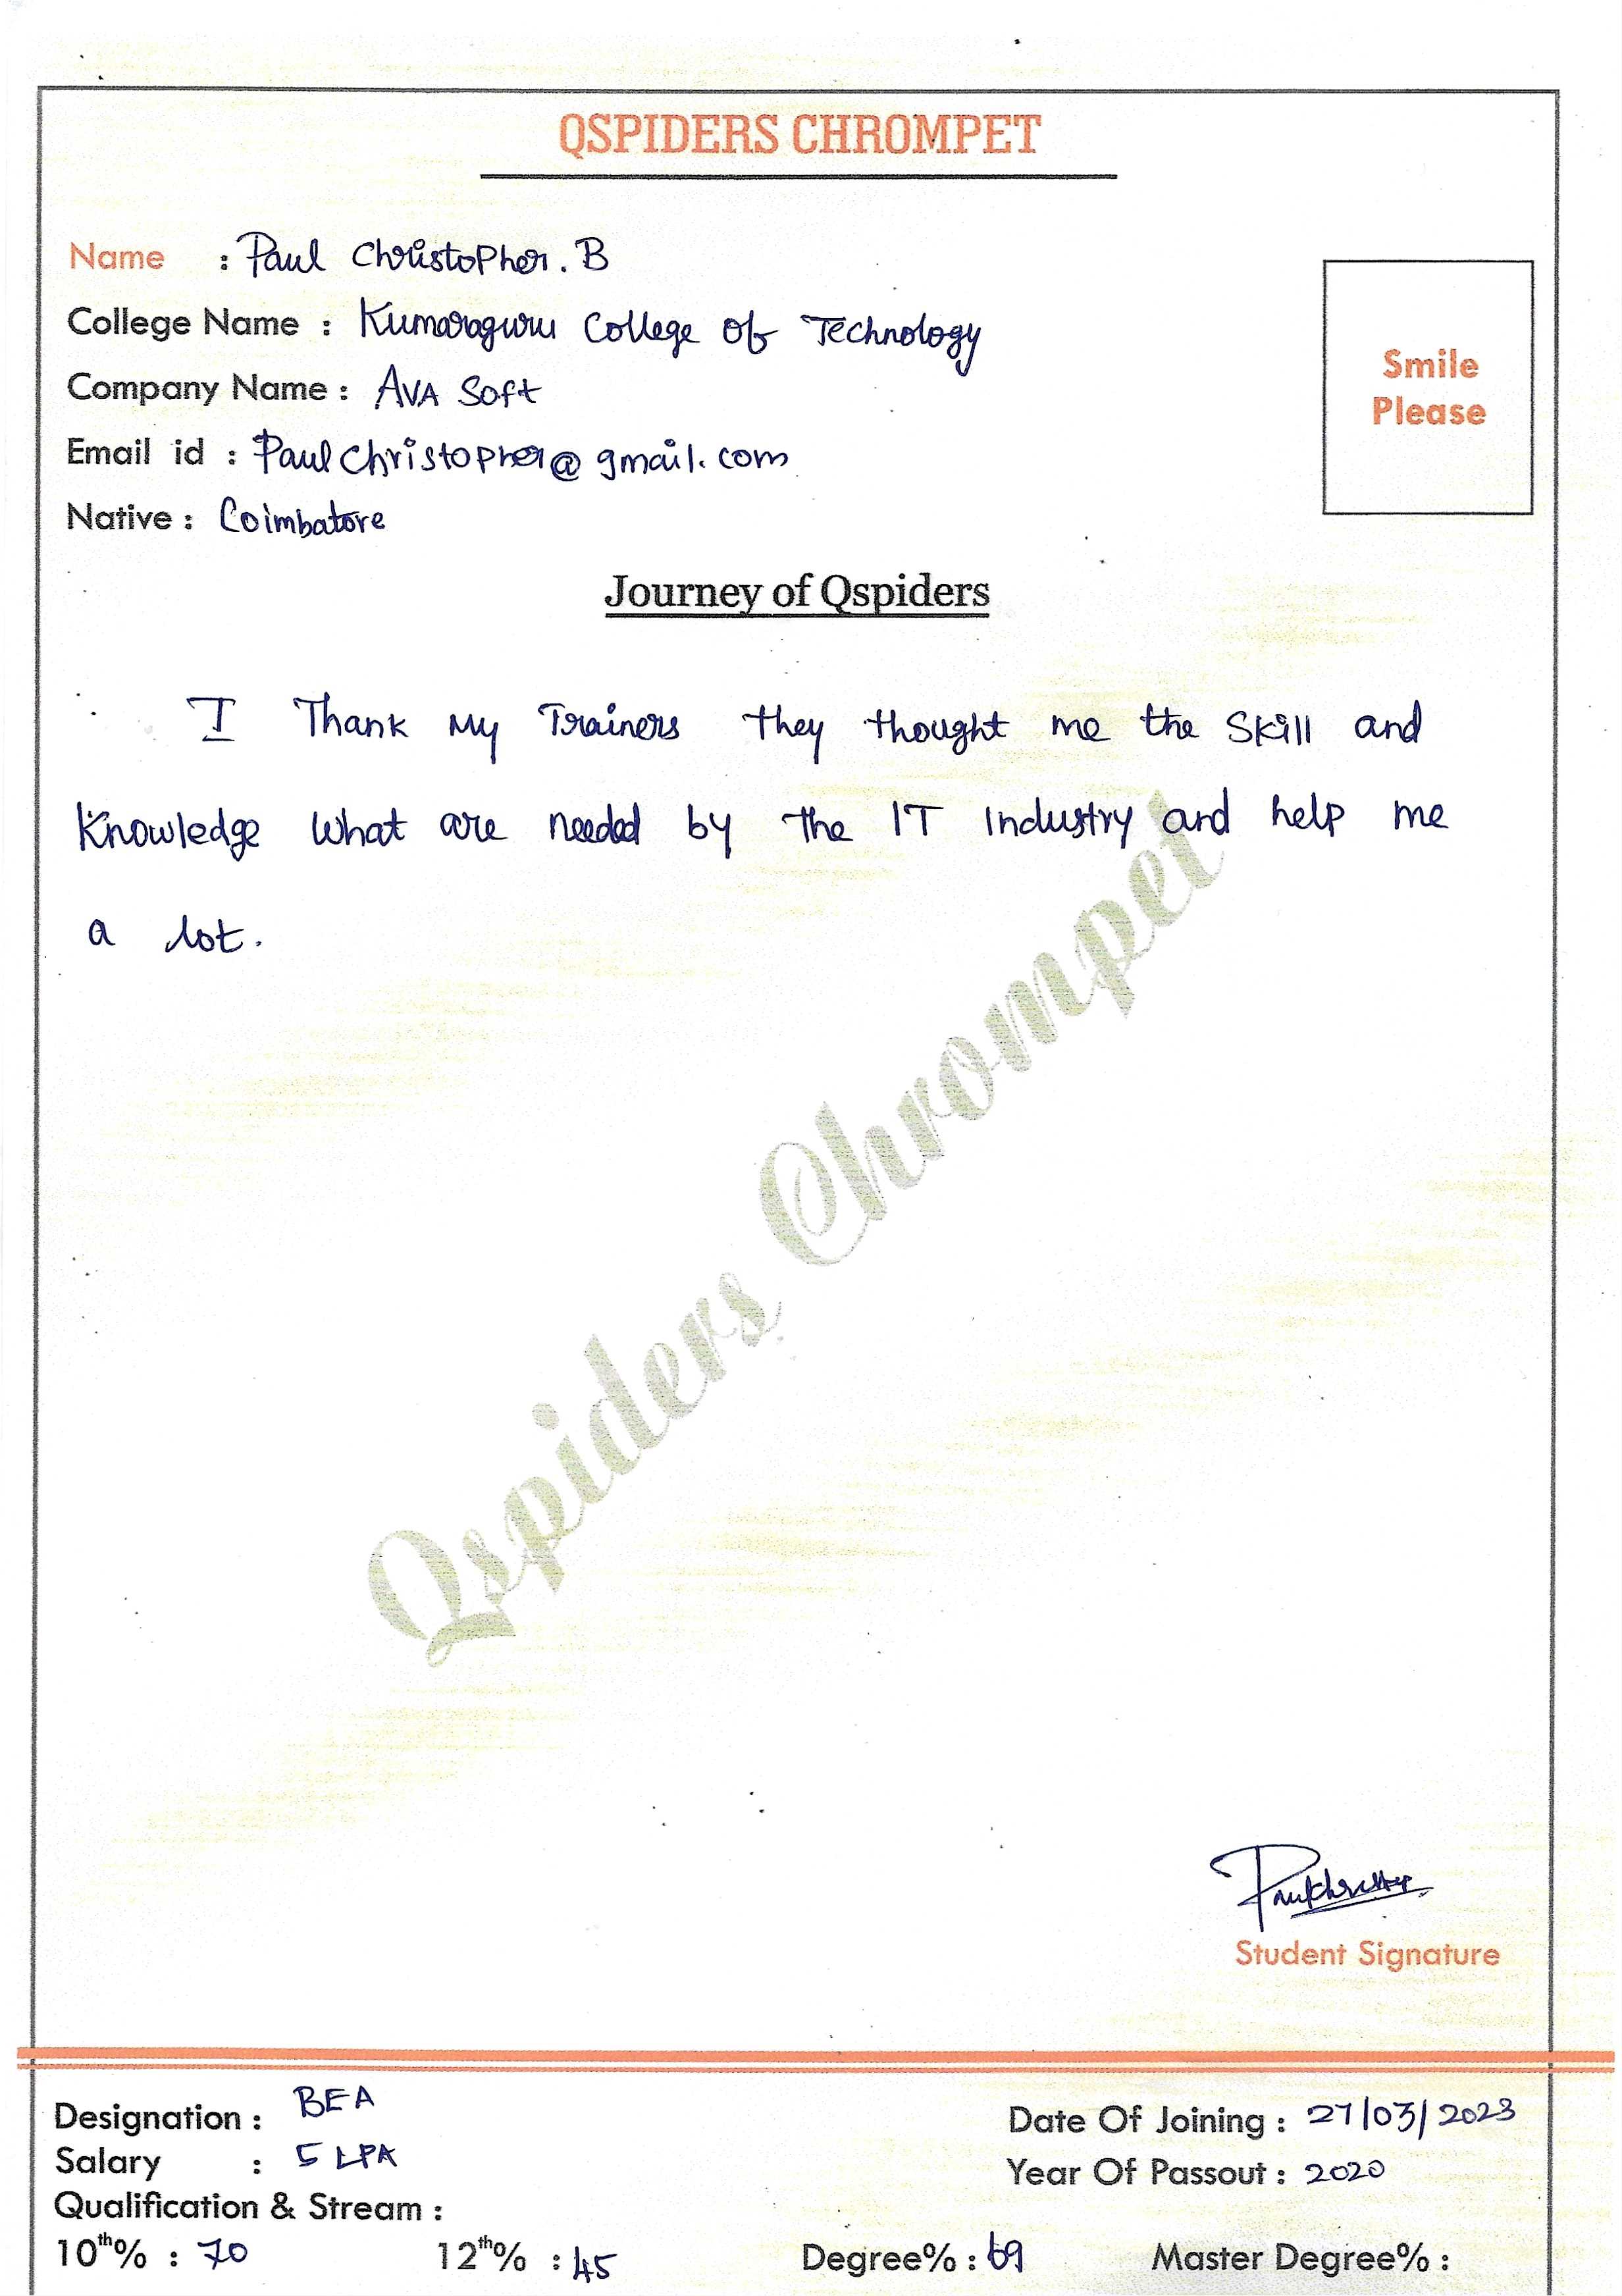 QSPIDERS CHROMPET
Name : Paul Christopher. B
College Name : Kumaraguru College of Technology
Company Name : AVA Soft
Email id : Paulchristopher@gmail.com
Native : Coimbatore
Smile
Please
Journey of Qspiders
I Thank My Trainers they thought me the Skill and
Knowledge What are needed by the IT Industry and help me
a lot.
Qspiders Chrompet
Student Signature
Designation : BEA
Salary : 5 LPA
Qualification & Stream :
Date Of Joining : 27/03/2023
Year Of Passout : 2020
10th% : 70 12th% : 45 Degree% : 69 Master Degree% :